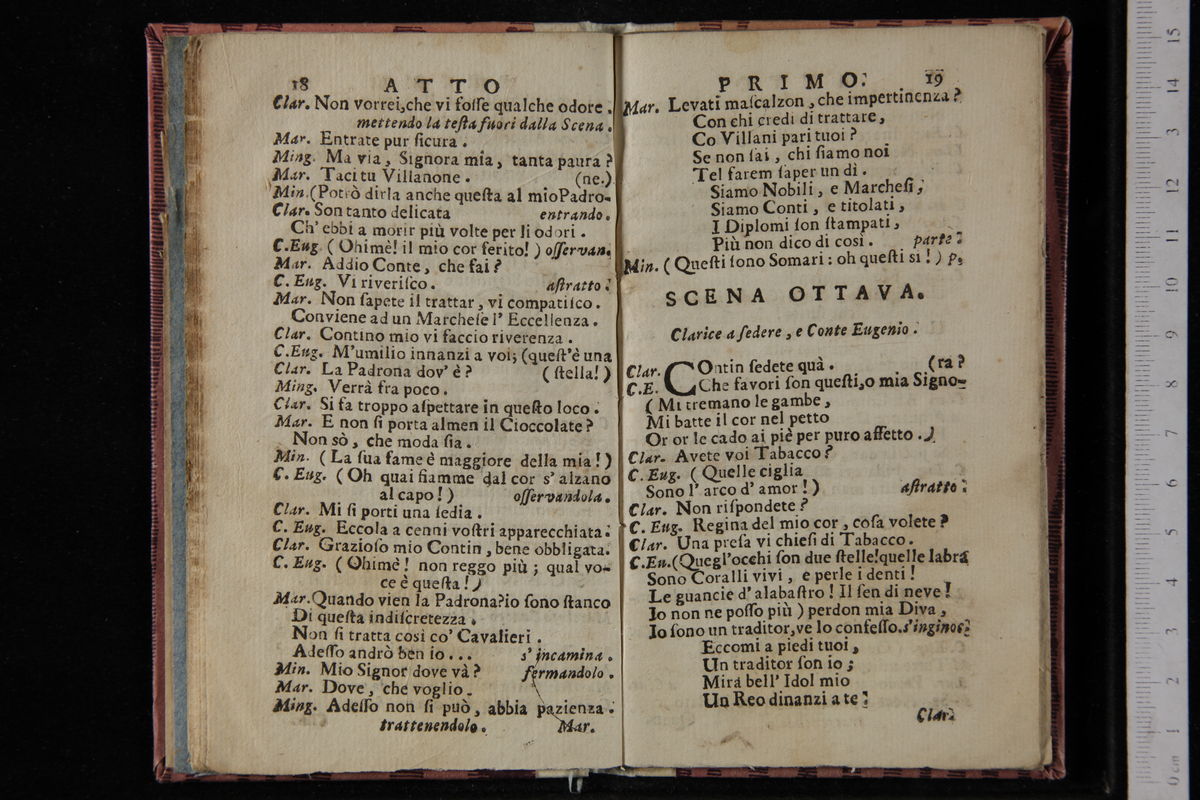 18 ATTO
Clar. Non vorrei,che vi foſſe qualche odore.
mettendo la teſta fuori dalla Scena.
Mar. Entrate pur ſicura.
Ming. Ma via, Signora mia, tanta paura?
Mar. Taci tu Villanone. (ne.)
Min.(Potrò dirla anche queſta al mioPadro-
Clar. Son tanto delicata entrando.
Ch' ebbi a morir più volte per li odori.
C.Eug. (Ohimè! il mio cor ferito!) oſſervan.
Mar. Addio Conte, che fai?
C. Eug. Vi riveriſco. aſtratto.
Mar. Non ſapete il trattar, vi compatiſco.
Conviene ad un Marcheſe l' Eccellenza.
Clar. Contino mio vi faccio riverenza.
C.Eug. M'umilio innanzi a voi; (queſt'è una
Clar. La Padrona dov' è? (ſtella!)
Ming. Verrà fra poco.
Clar. Si fa troppo aſpettare in queſto loco.
Mar. E non ſi porta almen il Cioccolate?
Non sò, che moda ſia.
Min. (La ſua fame è maggiore della mia!)
C. Eug. (Oh quai fiamme dal cor s' alzano
al capo!) oſſervandola.
Clar. Mi ſi porti una ſedia.
C. Eug. Eccola a cenni voſtri apparecchiata.
Clar. Grazioſo mio Contin, bene obbligata.
C. Eug. (Ohimè! non reggo più; qual vo-
ce è queſta!)
Mar.Quando vien la Padrona?io ſono ſtanco
Di queſta indiſcretezza.
Non ſi tratta così co' Cavalieri.
Adeſſo andrò ben io... s' incamina.
Min. Mio Signor dove và? fermandolo.
Mar. Dove, che voglio.
Ming. Adeſſo non ſi può, abbia pazienza.
trattenendolo. Mar.
PRIMO. 19
Mar. Levati maſcalzon, che impertinenza?
Con chi credi di trattare,
Co Villani pari tuoi?
Se non ſai, chi ſiamo noi
Tel farem ſaper un dì.
Siamo Nobili, e Marcheſi;
Siamo Conti, e titolati,
I Diplomi ſon ſtampati,
Più non dico di così. parte.
Min. (Queſti ſono Somari: oh queſti sì!) p.
SCENA OTTAVA.
Clarice a ſedere, e Conte Eugenio.
Clar. COntin ſedete quà. (ra?
C.E. Che favori ſon queſti,o mia Signo-
(Mi tremano le gambe,
Mi batte il cor nel petto
Or or le cado ai piè per puro affetto.)
Clar. Avete voi Tabacco?
C. Eug. (Quelle ciglia
Sono l' arco d' amor!) aſtratto.
Clar. Non riſpondete?
C. Eug. Regina del mio cor, coſa volete?
Clar. Una preſa vi chieſi di Tabacco.
C.Eu.(Quegl'occhi ſon due ſtelle!quelle labra
Sono Coralli vivi, e perle i denti!
Le guancie d' alabaſtro! Il ſen di neve!
Io non ne poſſo più) perdon mia Diva,
Io ſono un traditor,ve lo confeſſo.s'inginoc.
Eccomi a piedi tuoi,
Un traditor ſon io;
Mira bell' Idol mio
Un Reo dinanzi a te.
Clar.
15
14
13
12
11
10
9
8
7
6
5
4
3
2
1
0 cm